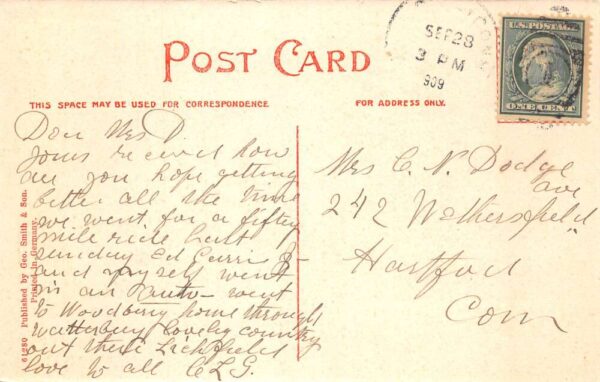 POST CARD
SEP 28
3 PM
1909
CONN
U.S. POSTAGE
ONE CENT
THIS SPACE MAY BE USED FOR CORRESPONDENCE.
FOR ADDRESS ONLY.
Dear Mrs D.
Yours received how
are you hope getting
better all the time
we went for a fifty
mile ride last
sunday Ed Carrie
and myself went
in an auto - went
to Woodbury home through
Watterbury lovely country
out there Lichfield
love to all C L G.
Mrs C. N. Dodge
242 Wethersfield ave
Hartford
Conn
61280 Published by Geo. Smith & Son.
Printed in Germany.